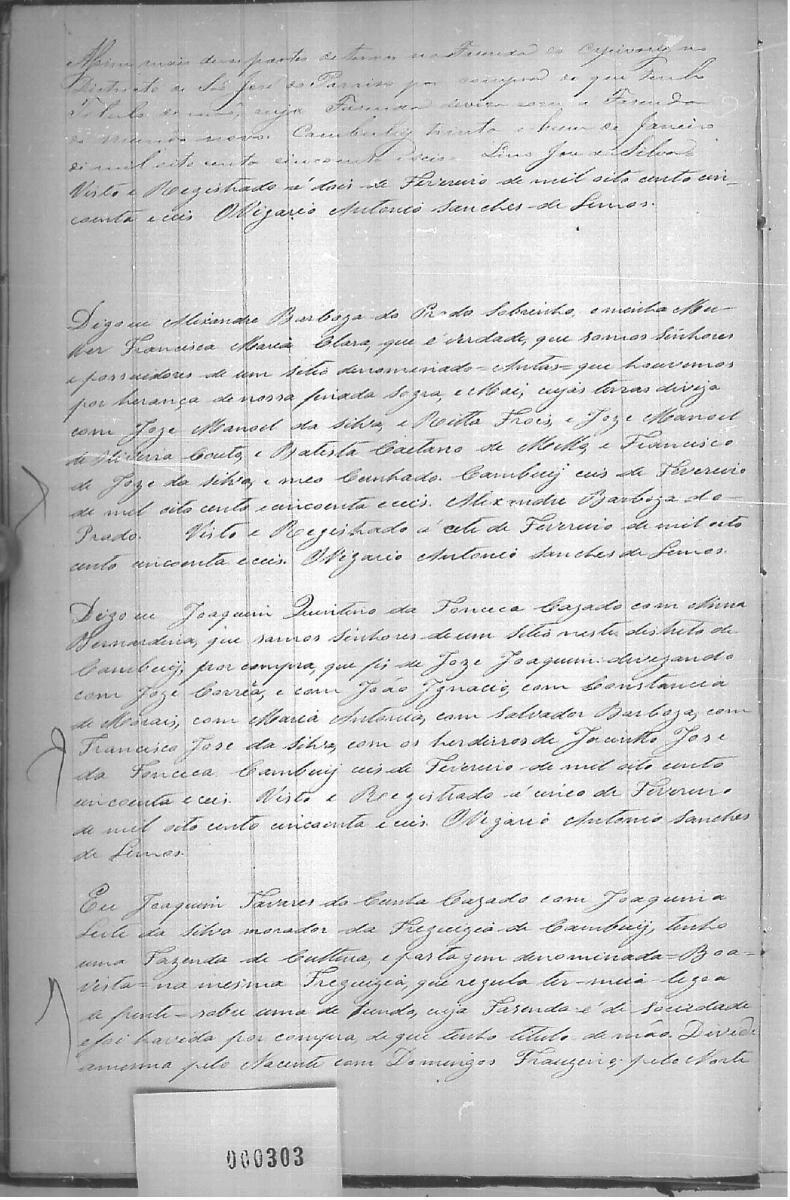 mais duas partes de terras na Fazenda do Capivary no
Districto de São José do Paraiso por compra de que tenho
Titulo de mão, cuja Fazenda devisa com a Fazenda
do mundo novo. Cambuhy trinta e hum de Janeiro
de mil oito cento cincoenta e ceis. Lino Joze da Silva
Visto e Registrado á dois de Fevereiro de mil oito cento cin-
coenta e ceis OVigario Antonio Sanches de Lemos.
Digo eu Alixandre Barboza do Prado Sobrinho, e minha Mu-
lher Francisca Maria Clara, que é verdade, que somos Sinhores
e possuidores de um sitio denominado = Antas = que houvemos
por herança de nossa finada Sogra, e Mai, cujas terras diviza
com Joze Manoel da Silva, e Ritta Frois, e Joze Manoel
de Couto, e Batista Caetano de Mello, e Francisco
de Joze da Silva, e meo Cunhado. Cambuij ceis de Fevereiro
de mil oito cento e cincoenta e ceis. Alixandre Barboza do
Prado. Visto e Registrado á cete de Fevereiro de mil oito
cento cincoenta e ceis. OVigario Antonio Sanches de Lemos.
Digo eu Joaquim Quintino da Fonceca Cazado com Anna
Bernardina, que somos Sinhores de um Sitio neste distrito de
Cambuij, por compra, que fis de Joze Joaquim devizando
com Joze Corrêa, e com João Ignacio, com Constancia
de Morais, com Maria Antonia, com Salvador Barboza, com
Francisco Jose da Silva, com os herdeiros de Jacintho Jose
da Fonceca Cambuij ceis de Fevereiro de mil oito cento
cincoenta e ceis. Visto e Registrado á cinco de Fevereiro
de mil oito cento cincoenta e ceis. OVigario Antonio Sanches
de Lemos.
Eu Joaquim Tavares da Cunha Cazado com Joaquina
Leite da Silva morador da Freguizia de Cambuij, tenho
uma Fazenda de Cultura, e pastagem denominada = Boa-
vista = na mesma Freguizia, que regula ter meia legoa
de frente sobre uma de fundo, cuja Fazenda é de Sociedade
e foi havida por compra, de que tenho titulo de mão. Devide
amesma pelo Nacente com Domingos pelo Norte
000303